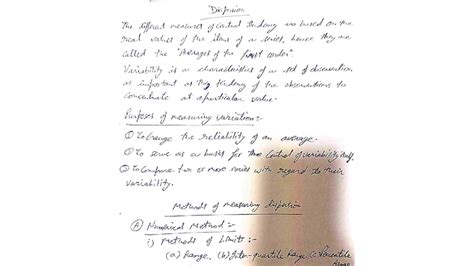 Dispersion
The different measures of central tendency are based on the
real values of the items of a series, hence they are
called the "Averages of the first order"
Variability is a characteristics of a set of observation
as important as the tendency of the observations to
concentrate at a particular value.
Purposes of measuring variation:-
① To Gauge the reliability of an average.
② To serve as a basis for the control of variability itself.
③ To compare two or more series with regard to their
variability.
Methods of measuring dispersion
(A) Numerical Method:-
i) Methods of Limits:-
(a) Range, (b) Inter-quartile Range (c) Percentile
Range